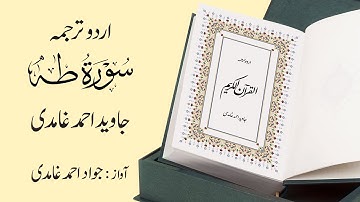 اردو ترجمہ
سورۃ طہٰ
جاوید احمد غامدی
آواز : جواد احمد غامدی
اردو ترجمہ
القرآن الکریم
جاوید احمد غامدی